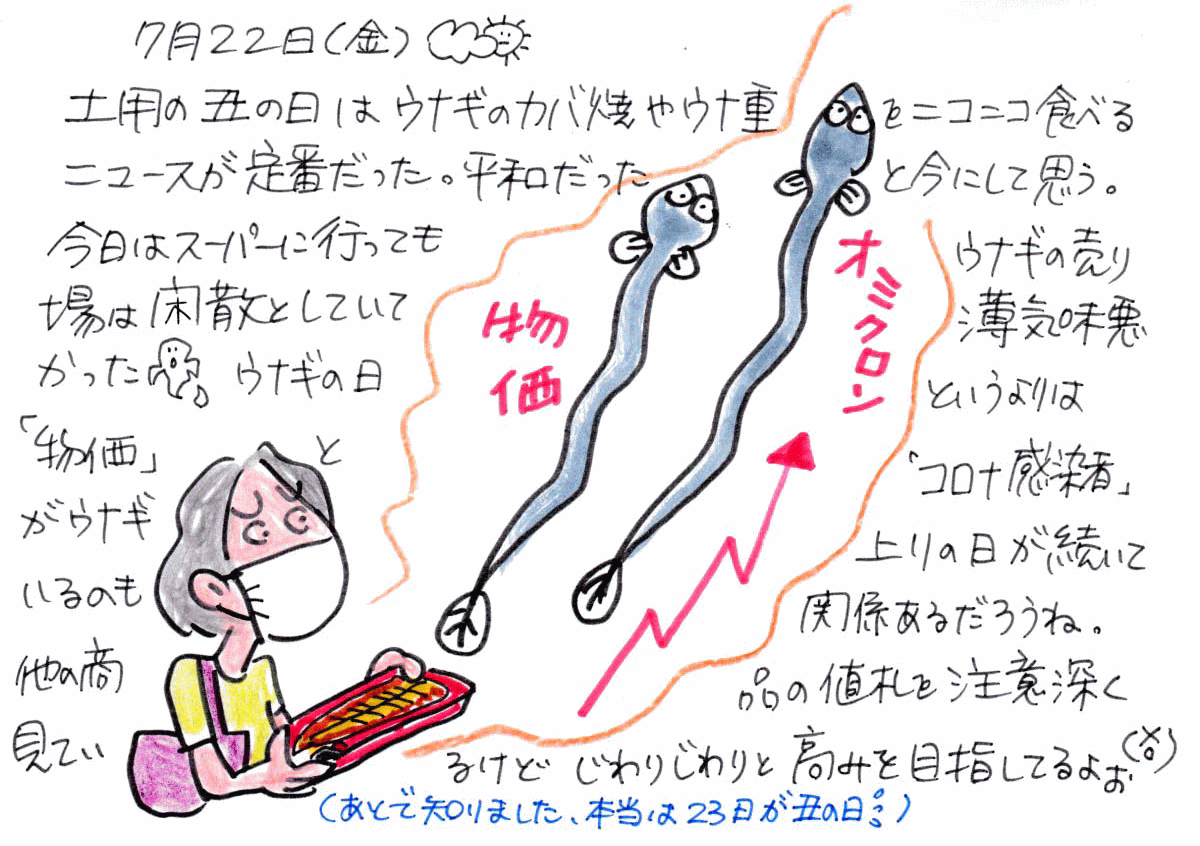 7月22日(金)
土用の丑の日はウナギのカバ焼やウナ重をニコニコ食べる
ニュースが定番だった。平和だったと今にして思う。
今日はスーパーに行っても ウナギの売り
場は閑散としていて 薄気味悪
かった ウナギの日 というよりは
「物価」と「コロナ感染者」
がウナギ 上りの日が続いて
いるのも 関係あるだろうね。
他の商 品の値札を注意深く
見てい るけど じわりじわりと高みを目指してるよぉ
物価
オミクロン
(あとで知りました、本当は23日が丑の日)